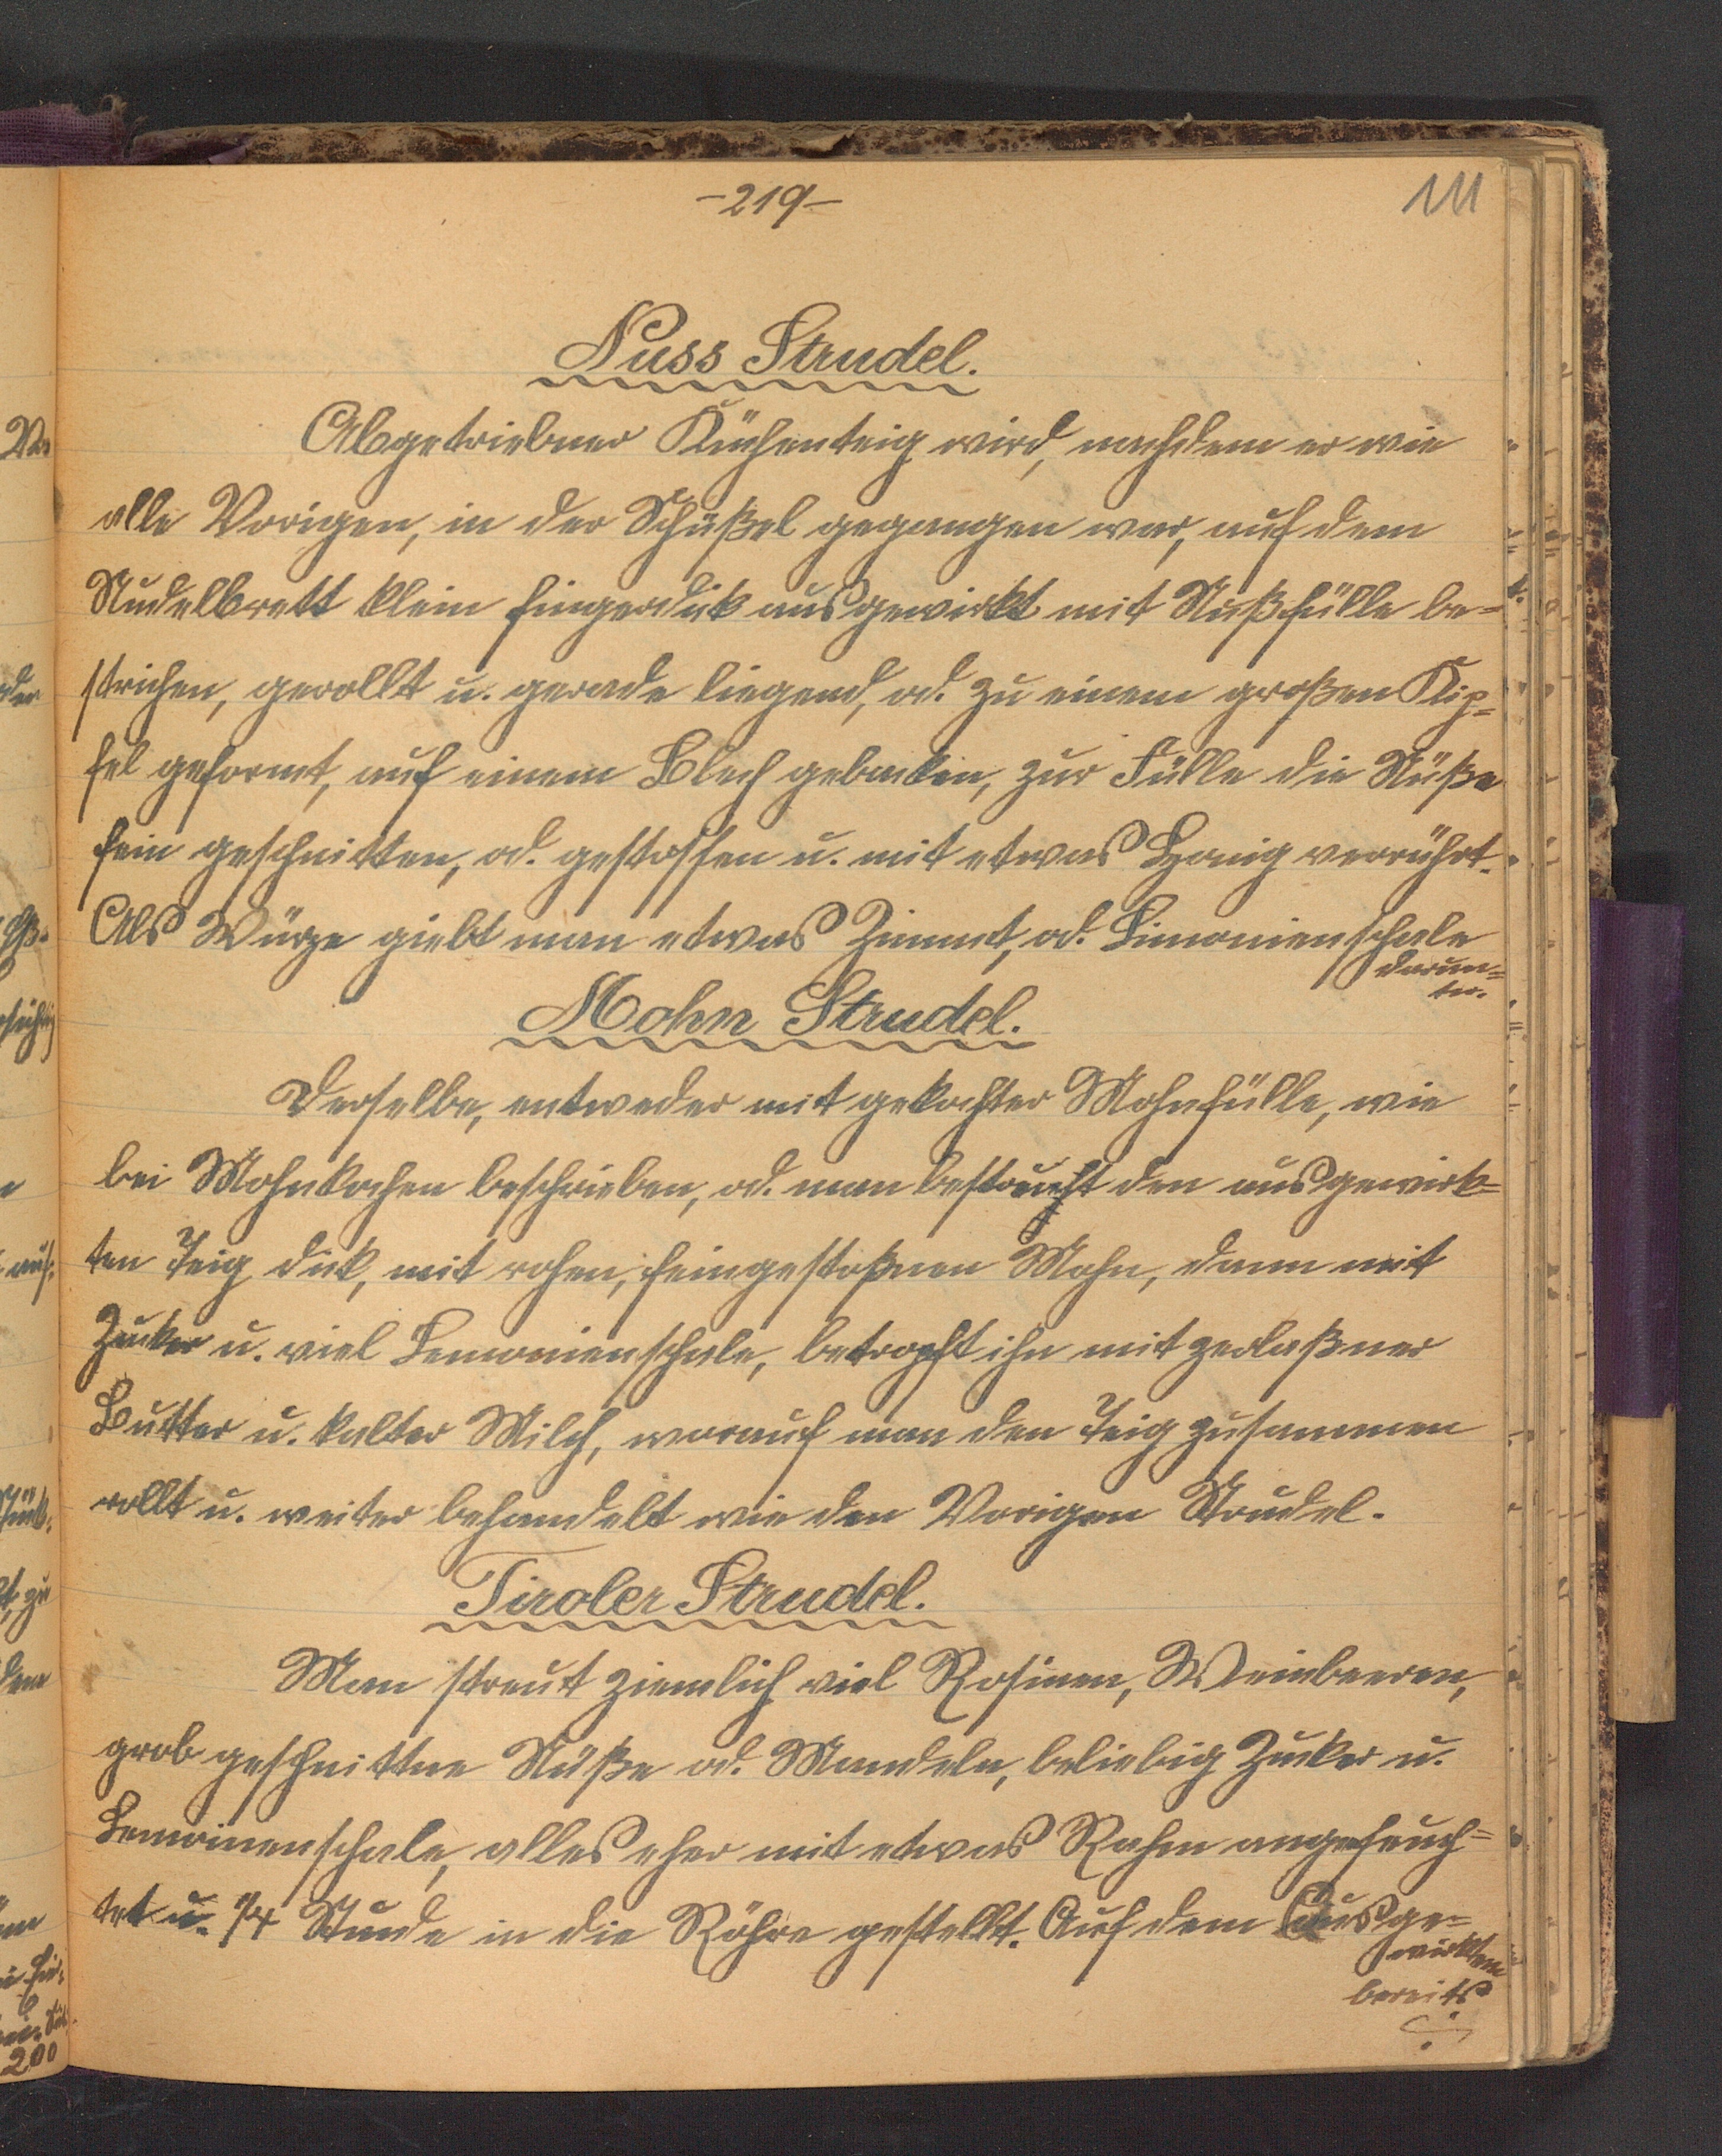 -219-
111
Nuss Strudel.
Abgetriebner Küchenteig wird, nachdem er wie
alle Vorigen, in der Schüßel gegangen war, auf dem
Nudelbrett klein fingerdik ausgewirkt mit Nußfülle be=
strichen, gerollt u. gerade liegend, od. zu einem großen Kip=
fel geformt, auf einem Blech gebacken, zur Fülle die Nüße
fein geschnitten, od. gestossen u. mit etwas Honig verrührt.
Als Würze giebt man etwas Zimmt, od. Limonienschale
darun=
ter.
Mohn Strudel.
Derselbe, entweder mit gekochter Mohnfülle, wie
bei Mohnkochen beschrieben, od. man bestreucht den ausgewirk=
ten Teig dick, mit rohen, feingestoßnen Mohn, dann mit
Zucker u. viel Lemonienschale, betropft ihn mit zerlaßner
Butter u. kalter Milch, worauf man den Teig zusammen
rollt u. weiter behandelt wie den Vorigen Strudel.
Tiroler Strudel.
Man streut ziemlich viel Rosinen, Weinbeeren,
grob geschnittne Nüße od. Mandeln, beliebig Zucker u.
Lemoinenschale, alles eher mit etwas Rahm angefeuch=
tet u. 1/4 Stunde in die Röhre gestellt. Auf dem Ausge=
wirktem
bereits